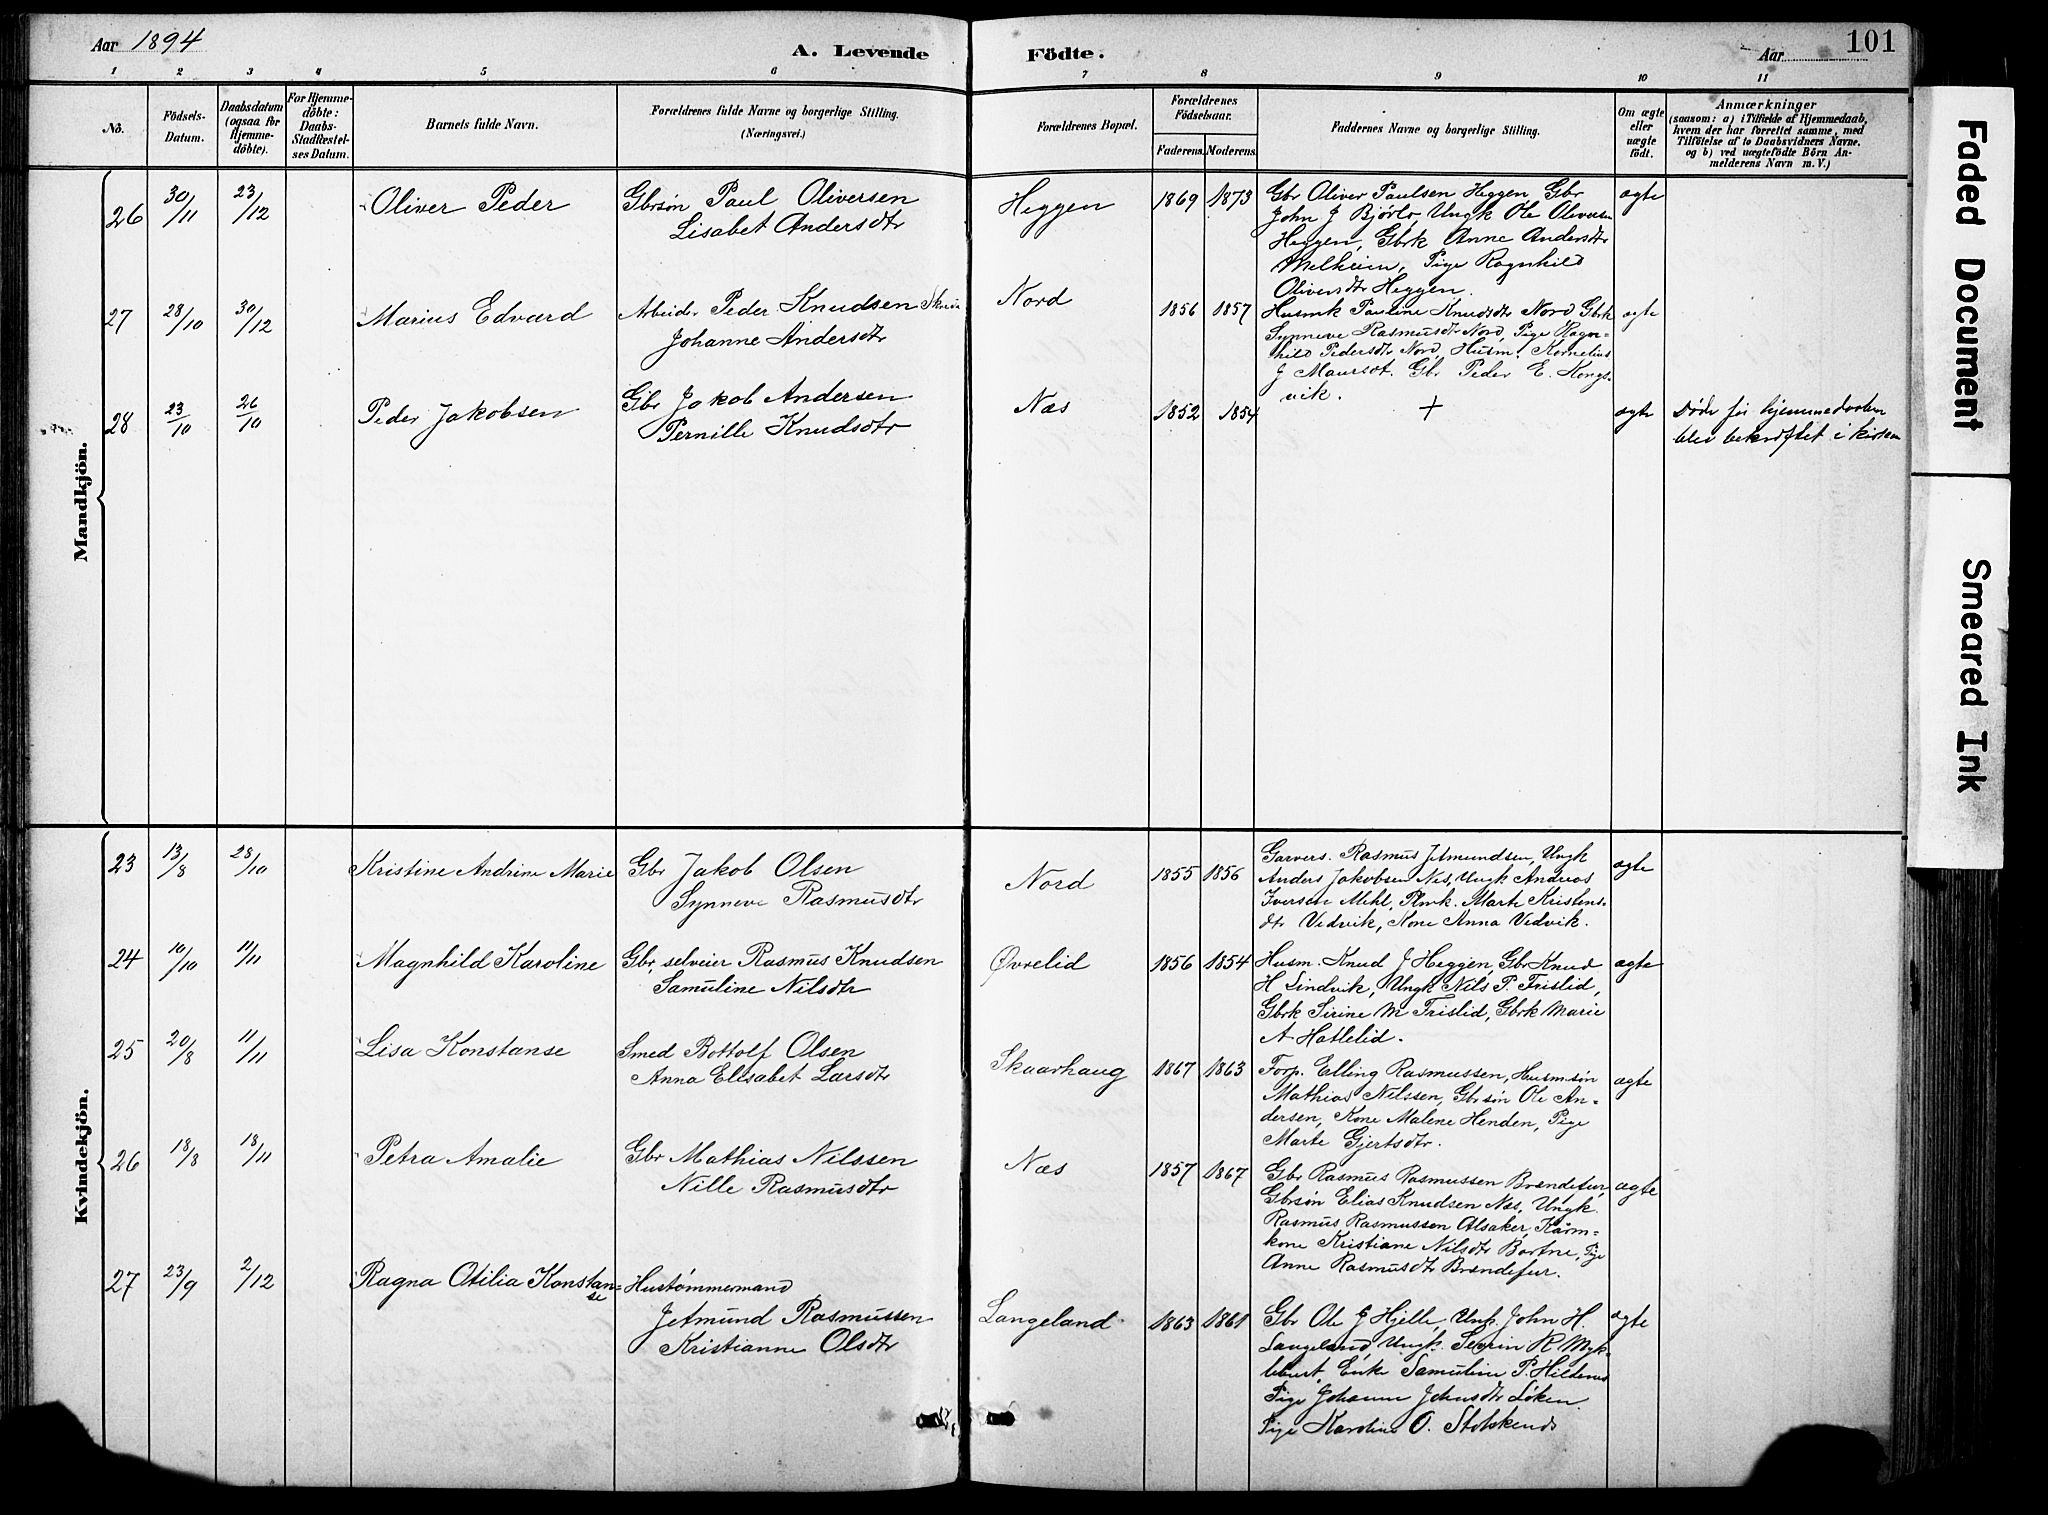 Aar 1894
A. Levende
Födte.
Aar
101
1 2 3 4 5 6 7 8 9 10 11
No.
Födsels-
Datum.
Daabsdatum
(ogsaa for
Hjemme-
döbte).
For Hjemme-
döbte:
Daabs-
Stadfæstel-
ses Datum.
Barnets fulde Navn.
Forældrenes fulde Navne og borgerlige Stilling.
(Næringsvei.)
Forældrenes Bopæl.
Forældrenes
Födselsaar.
Faderens. Moderens.
Faddernes Navne og borgerlige Stilling.
Om ægte
eller
uægte
födt.
Anmærkninger
(saasom: a) i Tilfælde af Hjemmedaab,
hvem der har forrettet samme, med
Tilföielse af to Daabsvidners Navne.
og b) ved uægtefödte Börn An-
melderens Navn m. V.)
Mandkjön.
26 30/11 23/12 Oliver Peder
Gbrsøn Paul Oliversen
Lisabet Andersdtr
Heggen 1869 1873
Gbr Oliver Paulsen Heggen Gbr
John J Bjørlo, Ungk Ole Oliversn
Heggen, Gbrk Anne Andersdtr
Melheim, Pige Ragnhild
Oliversdtr Heggen.
ægte
27 28/10 30/12 Marius Edvard
Arbeider Peder Knudsen
Johanne Andersdtr
Nord 1856 1857
Husmk Pauline Knudsdtr Nord Gbrk
Synneve Rasmusdtr Nord, Pige Ragn-
hild Pedersdtr Nord, Husm. Kornelius
J Maurset. Gbr Peder E. Kongs-
vik.
ægte
28 23/10 26/10 Peder Jakobsen
Gbr Jakob Andersen
Pernille Knudsdtr
Næs 1852 1854
+
ægte
Døde før hjemmedaaben
blev bekræftet i kirken
Kvindekjön.
23 13/8 28/10 Kristine Andrine Marie
Gbr Jakob Olsen
Synneve Rasmusdtr
Nord 1855 1856
Garvers. Rasmus Jetmundsen, Ungk
Anders Jakobsen Nes, Ungk. Andreas
Iversen Mehl, Plmk. Marte Kristens-
dtr Vedvik, Kone Anna Vedvik.
ægte
24 10/10 11/11 Magnhild Karoline
Gbr, selveier Rasmus Knudsen
Samuline Nilsdtr
Øvrelid 1856 1854
Husm. Knud J Heggen, Gbr Knud
H Lindvik, Ungk Nils P. Frislid,
Gbrk Sirine M Frislid, Gbrk Marie
A Hatlelid.
ægte
25 20/8 11/11 Lisa Konstanse
Smed Bottolf Olsen
Anna Elisabet Larsdtr
Skaarhaug 1867 1863
Forp. Elling Rasmussen, Husmsøn
Mathias Nilssen, Gbrsøn Ole An-
dersen, Kone Malene Henden, Pige
Marte Gjertsdtr.
ægte
26 18/8 18/11 Petra Amalie
Gbr Mathias Nilssen
Nille Rasmusdtr
Næs 1857 1867
Gbr Rasmus Rasmussen Brandefur,
Gbrsøn Elias Knudsen Næs, Ungk.
Rasmus Rasmussen Alsaker, Kårm-
kone Kristiane Nilsdtr Bortne, Pige
Anne Rasmusdtr Brandefur.
ægte
27 23/9 2/12 Ragna Otilia Konstan-
se
Hustømmermand
Jetmund Rasmussen
Kristianne Olsdtr
Langeland 1863 1861
Gbr Ole J Hjelle, Ungk. John H.
Langeland, Ungk. Severin R Myk-
lebust, Enke Samuline P. Hildenes
Pige Johanne Johnsdtr Løken.
Pige Karoline O.
ægte
Faded Document
Smeared Ink